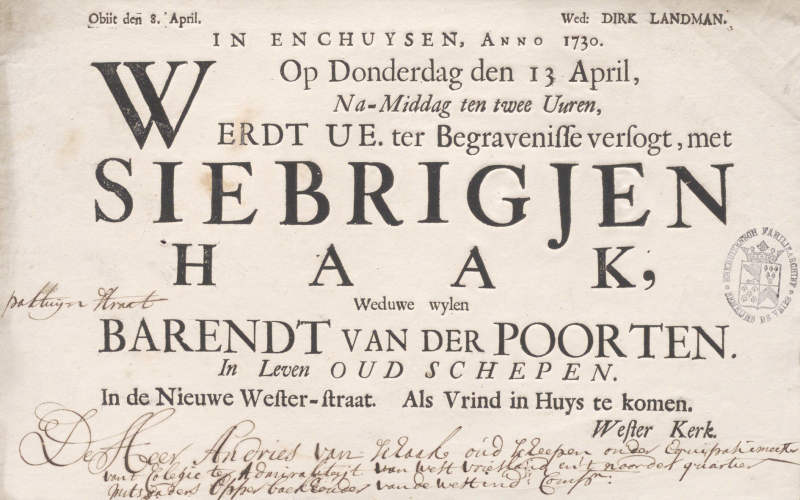 Obiit den 8. April.
Wed: DIRK LANDMAN.
IN ENCHUYSEN, ANNO 1730.
Op Donderdag den 13 April,
Na-Middag ten twee Uuren,
WERDT UE. ter Begraveniſſe verſogt, met
SIEBRIGJEN
HAAK,
Weduwe wylen
BARENDT VAN DER POORTEN.
In Leven OUD SCHEPEN.
In de Nieuwe Weſter-ſtraat. Als Vrind in Huys te komen.
Weſter Kerk.
straet
De Heer Andries van oud scheepen onder Equipatiemeester
van't Colegie ter Admiraliteyt van West Vriesland en't noorder quartier
mitsgaders Opper boekhouder van de west ind: Comp:
ENKHUIZENSCH FAMILIEARCHIEF
DE VRIES